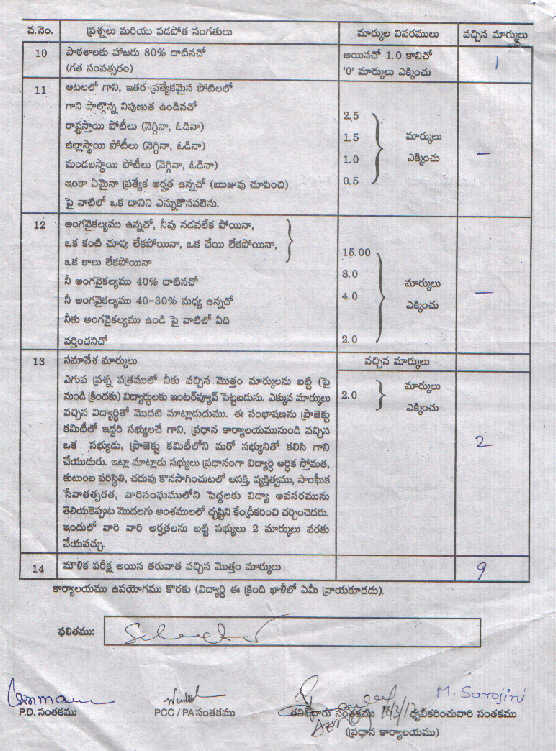 వ.నెం. ప్రశ్నలు మరియు పడపోత సంగతులు మార్కుల వివరములు వచ్చిన మార్కులు
10 పాఠశాలకు హాజరు 80% దాటినచో అయినచో 1.0 కానిచో 1
(గత సంవత్సరం) '0' మార్కులు ఎక్కించు
11 ఆటలలో గాని, ఇతర ప్రత్యేకమైన పోటీలలో
గాని పాల్గొన్న నిపుణుత ఉండినచో 2.5
రాష్ట్రస్థాయి పోటీలు (నెగ్గినా, ఓడినా) 1.5 మార్కులు
జిల్లాస్థాయి పోటీలు (నెగ్గినా, ఓడినా) 1.0 ఎక్కించు –
మండలస్థాయి పోటీలు (నెగ్గినా, ఓడినా) 0.5
ఇంకా ఏమైనా ప్రత్యేక అర్హత ఉన్నచో (ఋజువు చూపించి)
పై వాటిలో ఒక దానిని ఎన్నుకొనవలెను.
12 అంగవైకల్యము ఉన్నలో, నీవు నడవలేక పోయినా,
ఒక కంటి చూపు లేకపోయినా, ఒక చేయి లేకపోయినా, 15.00
ఒక కాలు లేకపోయినా 8.0
నీ అంగవైకల్యము 40% దాటినచో 4.0 మార్కులు
నీ అంగవైకల్యము 40-30% మధ్య ఉన్నచో ఎక్కించు –
నీకు అంగవైకల్యము ఉండి పై వాటిలో ఏది
వర్తించనిచో 2.0
13 సమావేశ మార్కులు వచ్చిన మార్కులు
ఎగువ ప్రశ్న పత్రములో నీకు వచ్చిన మొత్తం మార్కులను బట్టి (పై
నుండి క్రిందకు) విద్యార్థులకు ఇంటర్వ్యూవ్ పెట్టబడును. ఎక్కువ మార్కులు 2.0 మార్కులు
వచ్చిన విద్యార్థితో మొదటి మాట్లాడుదుము. ఈ సంభాషణను ప్రాజెక్టు ఎక్కించు
కమిటీలో ఇద్దరి సభ్యులచే గాని, ప్రధాన కార్యాలయమునుండి వచ్చిన
ఒక సభ్యుడు, ప్రాజెక్టు కమిటీలోని మరో సభ్యునితో కలిసి గాని 2
చేయుదురు. ఇట్లా మాట్లాడు సభ్యులు ప్రధానంగా విద్యార్థి ఆర్థిక స్తోమత,
కుటుంబ పరిస్థితి, చదువు కొనసాగించుటలో ఆసక్తి, వ్యక్తిత్వము, సాంఘీక
సేవాతత్పరత, వారిసంఘములోని పెద్దలకు విద్యా అవసరమును
తెలియచెప్పుట మొదలగు అంశములలో దృష్టిని కేంద్రీకరించి చర్చించెదరు.
ఇందులో వారి వారి అర్హతలను బట్టి సభ్యులు 2 మార్కులు వరకు
వేయవచ్చు.
14 మౌళిక పరీక్ష అయిన తరువాత వచ్చిన మొత్తం మార్కులు 9
కార్యాలయము ఉపయోగము కొరకు (విద్యార్థి ఈ క్రింది ఖాళీలో ఏమీ వ్రాయకూడదు).
ఫలితము:
M. Sarojini
P.D. సంతకము POC / PA సంతకము సంతకము ధృవీకరించువారి సంతకము
(ప్రధాన కార్యాలయము)